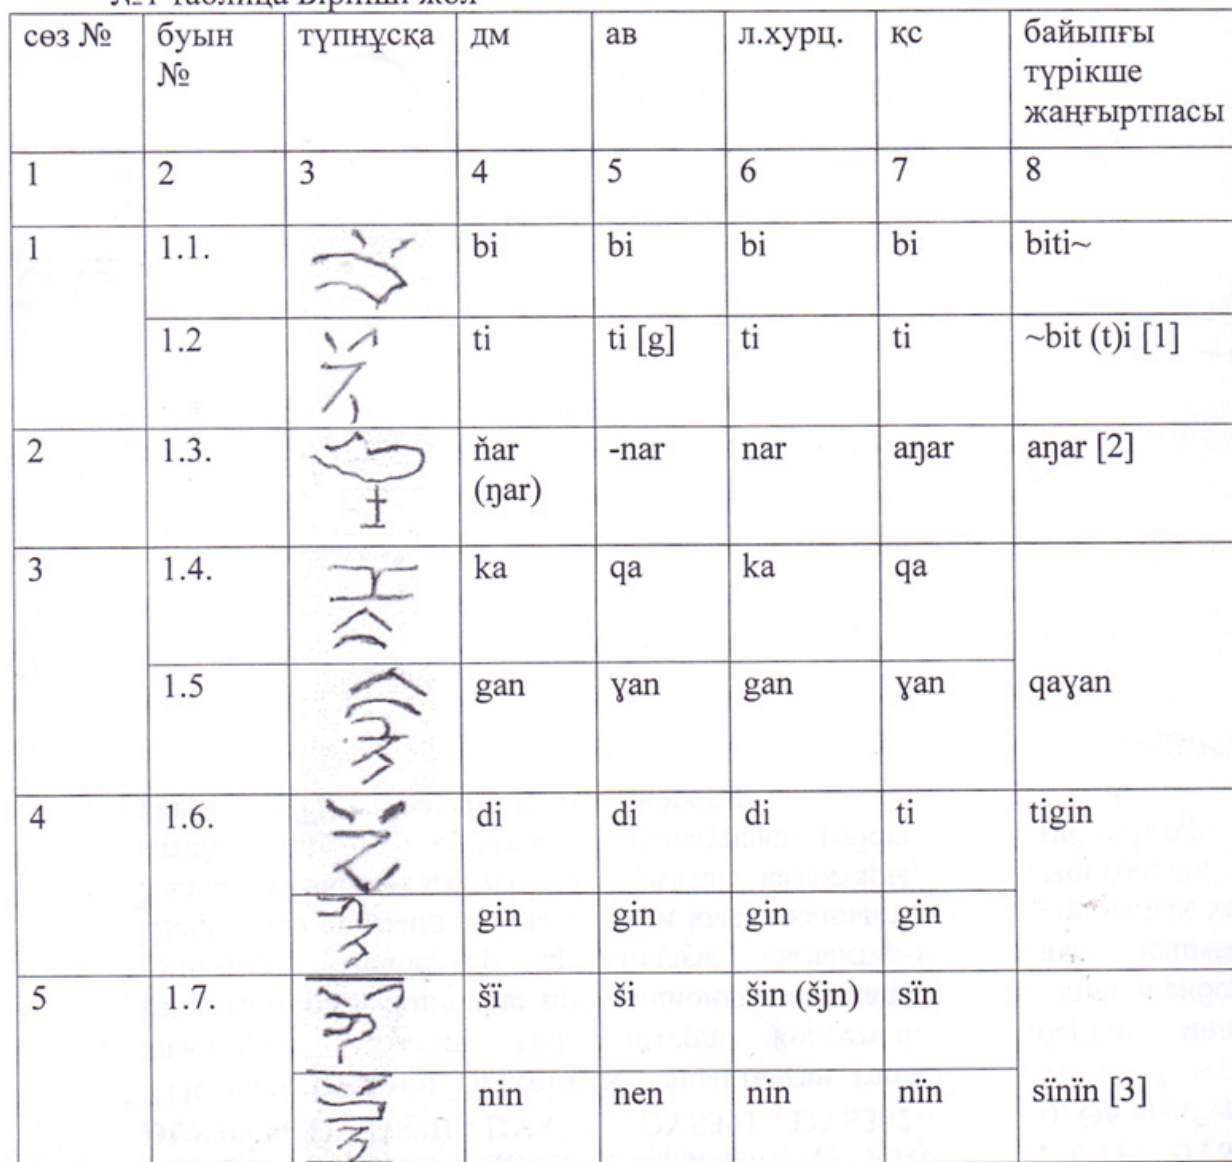 №1 таблица Бірінші жол
сөз № буын № түпнұсқа дм ав л.хурц. қс байыпғы түрікше жаңғыртпасы
1 2 3 4 5 6 7 8
1 1.1. bi bi bi bi biti~
1.2 ti ti [g] ti ti ~bit (t)i [1]
2 1.3. ňar (ŋar) -nar nar aŋar aŋar [2]
3 1.4. ka qa ka qa
1.5 gan ɣan gan ɣan qaɣan
4 1.6. di di di ti tigin
gin gin gin gin
5 17. šï ši šin (šjn) sïn
nin nen nin nïn sïnïn [3]